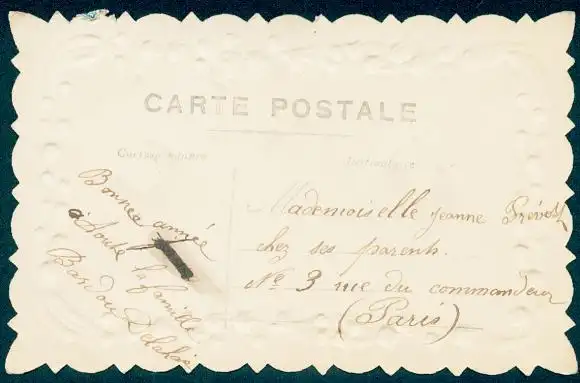 CARTE POSTALE
Correspondance
Destinataire
Bonne année
à toute la famille
Mademoiselle Jeanne Prévost
chez ses parents.
No 3 rue du commandeur
(Paris)